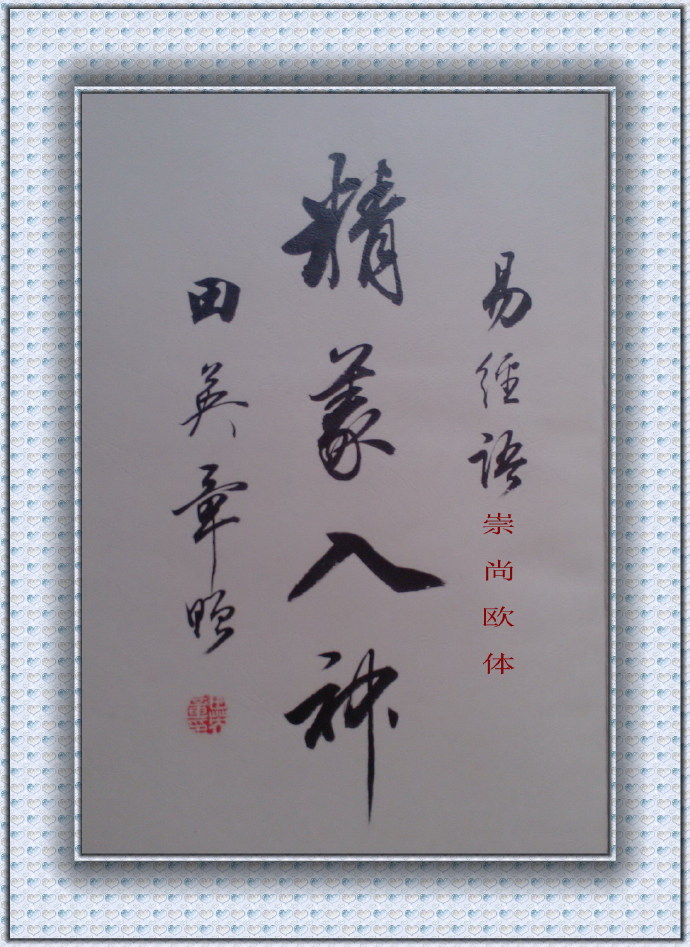 易經語
崇尚欧体
精義入神
田英章贈